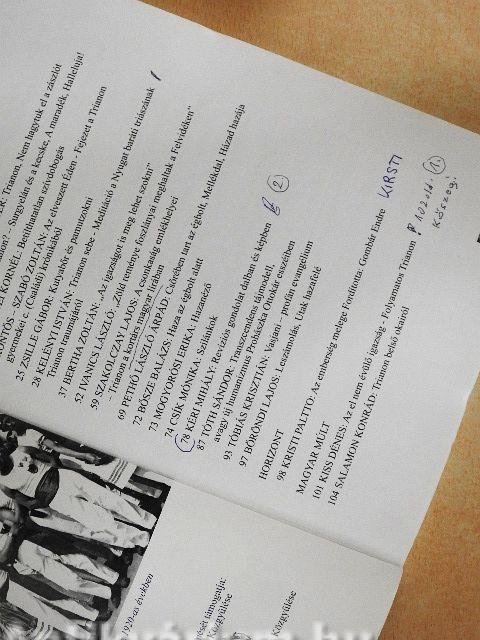 ER: Trianon, Nem hagytuk el a zászlót
non? - Sürgyelán és a kecske, A maradék, Halleluja!
KORNÉL: Beríthatatlan szívdobogás
ÖNTÖS – SZABÓ ZOLTÁN: Az elveszett Éden - Fejezet a Trianon
gyermekei c. (Családi) krónikából
25 ZSILLE GÁBOR: Konyakőr és pamutzokni
28 KELÉNYI ISTVÁN: Trianon sebe - Meditáció a Nyugat baráti triászának
Trianon traumájáról
37 BERTHA ZOLTÁN: „Az igazságot is meg lehet szokni”
52 IVANICS LÁSZLÓ: „Zöld reménye foszlányai meghaltak a Felvidéken”
59 SZAKOLCZAY LAJOS: A csonkaság emlékhelyei
– Trianon a kortárs magyar lírában
69 PETHŐ LÁSZLÓ ÁRPÁD: Csőrében tart az égbolt, Mellékdal, Házad hazája
72 BŐSZE BALÁZS: Haza az égbolt alatt
73 MOGYORÓSI ERIKA: Hazanéző
74 CSÍK MÓNIKA: Szilánkok
78 KÉRI MIHÁLY: Revíziós gondolat dalban és képben 2.
87 TÓTH SÁNDOR: Transzcendens tájmodell,
avagy új humanizmus Prohászka Ottokár esszéiben
93 TÓBIÁS KRISZTIÁN: Vasjani – profán evangélium
97 BÖRÖNDI LAJOS: Leszámolás, Utak hazafelé
HORIZONT
98 KRISTI PALITTO: Az emberség melege Fordította: Gombár Endre KIRSTI
MAGYAR MÚLT
101 KISS DÉNES: Az el nem évülő igazság - Folyamatos Trianon
104 SALAMON KONRÁD: Trianon belső okairól
1920-as években
támogatja:
Közgyűlése
Közgyűlése